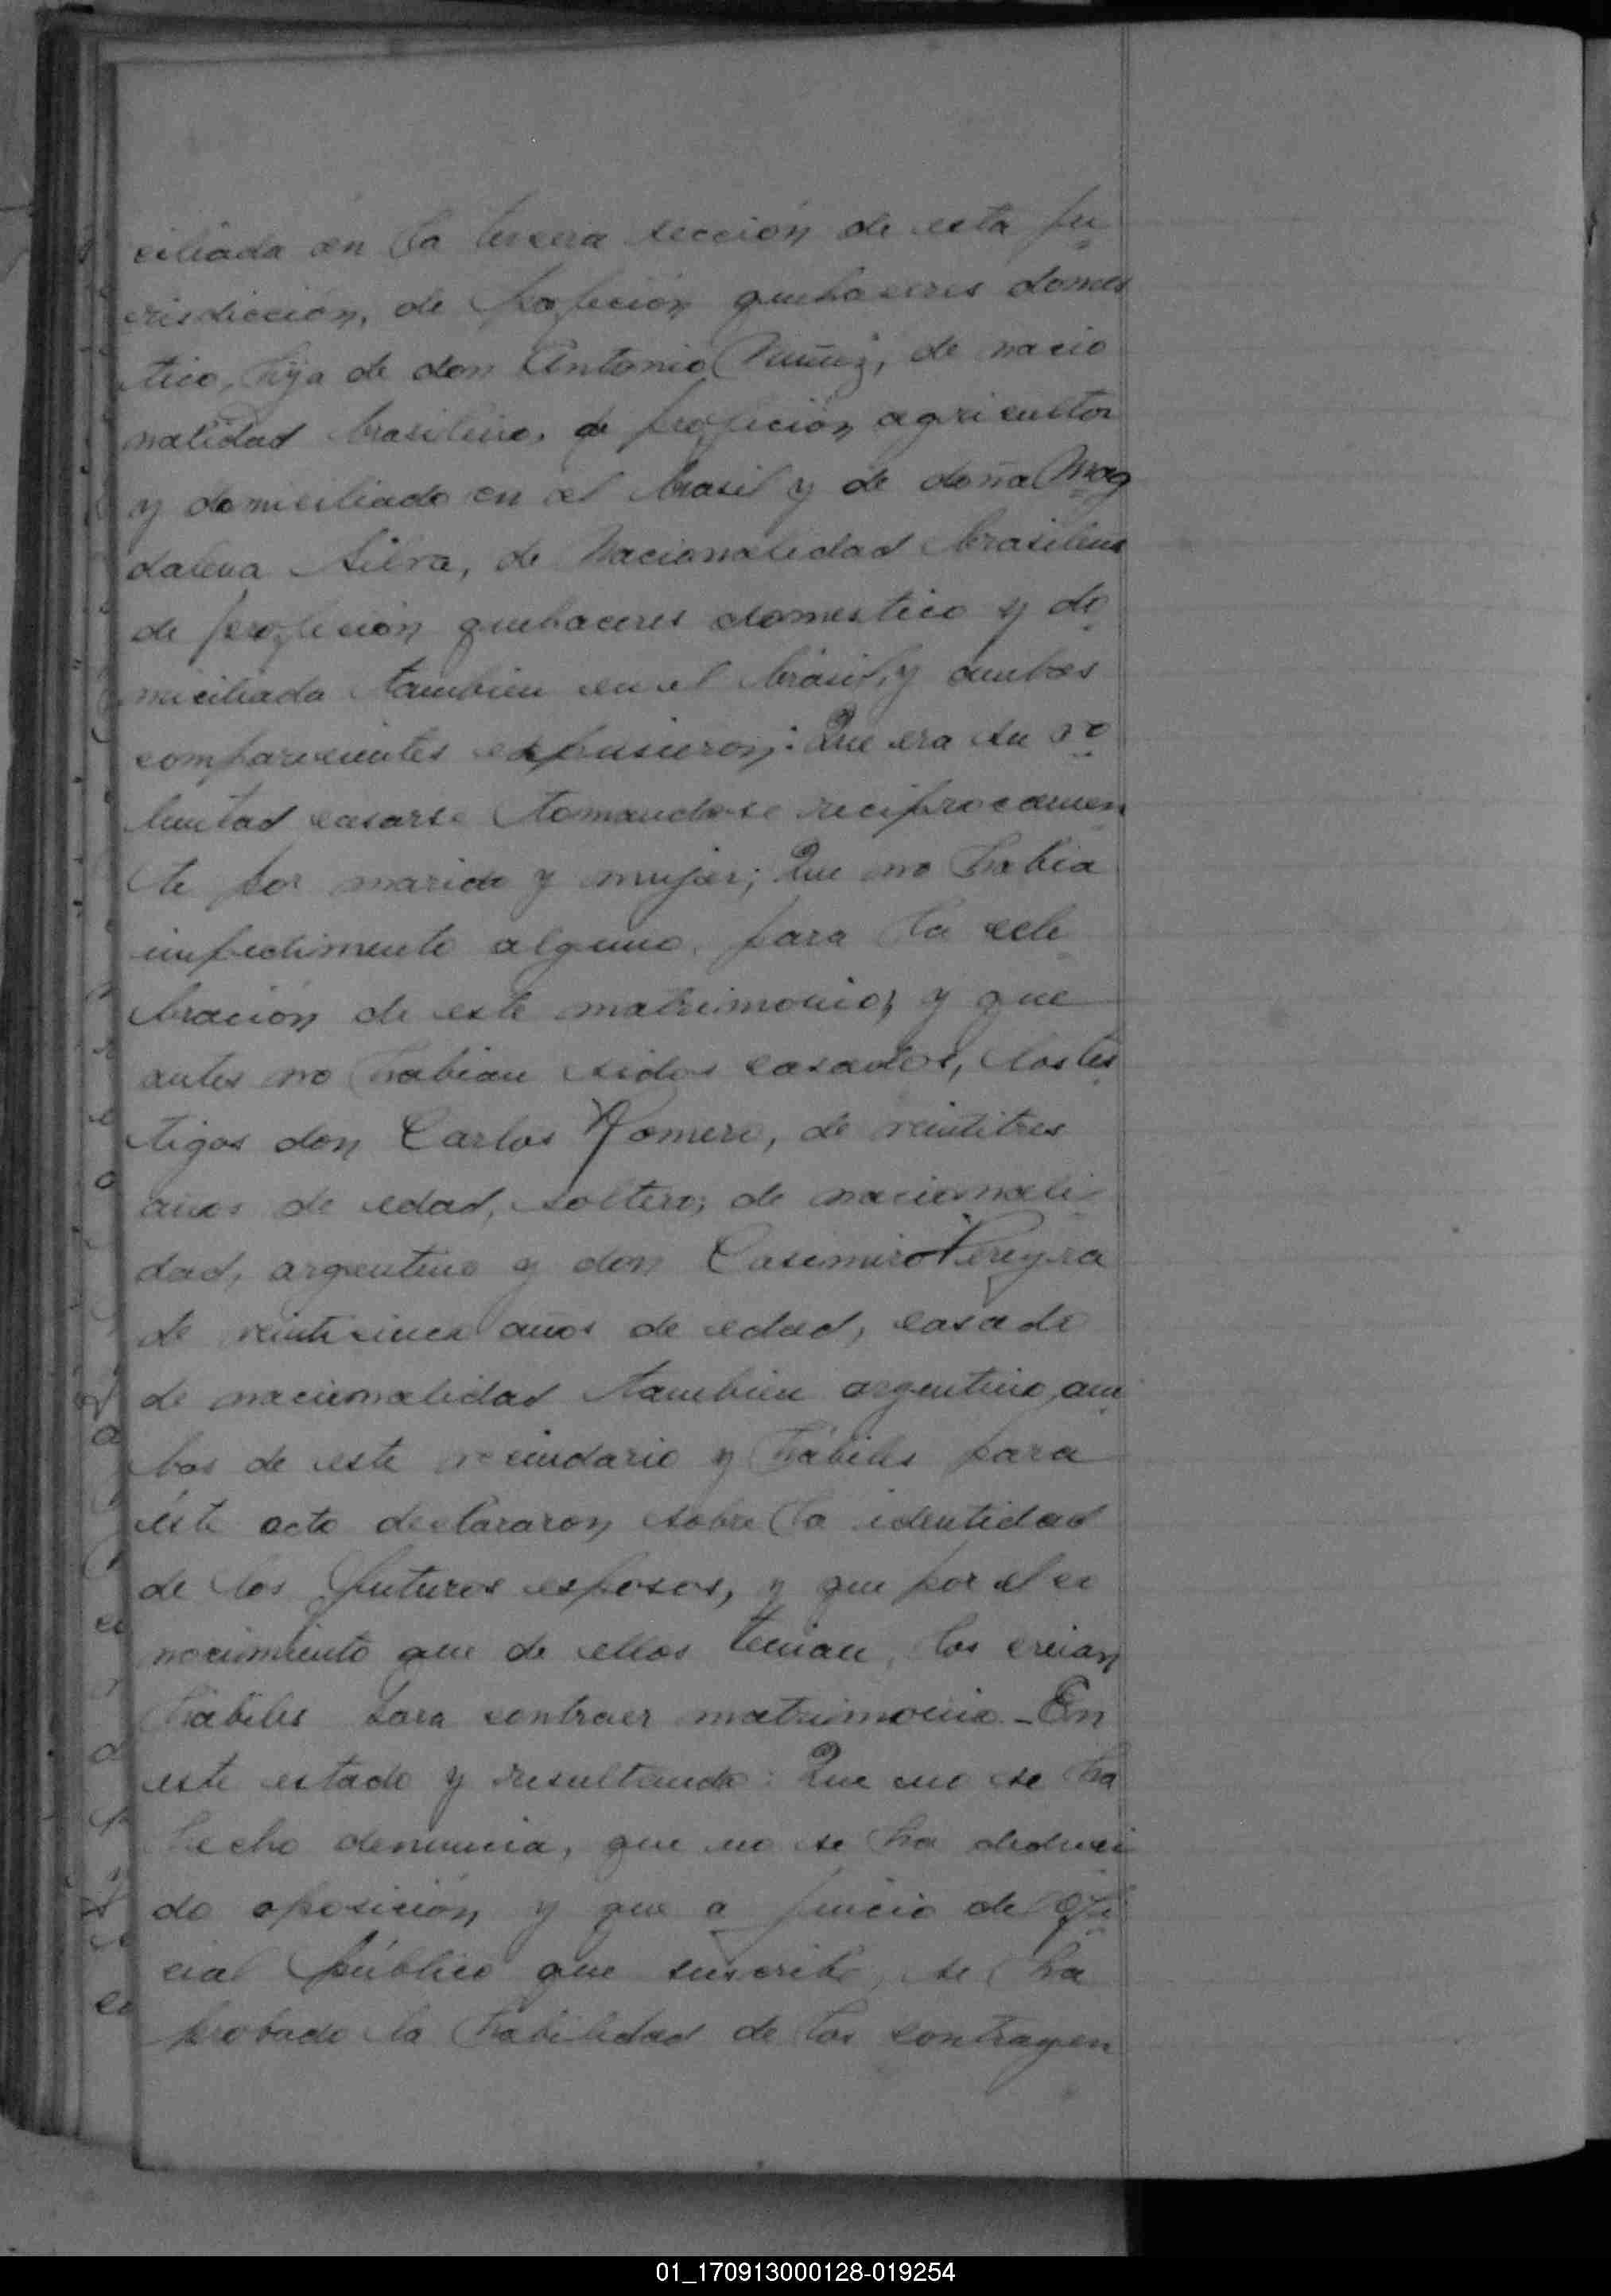 ciliada en la tercera sección de esta ju
risdicción, de profición quehaceres domes
tico, hija de don Antonio Muñoz, de nacio
nalidad brasilero, de profición agricultor
y domiciliado en el brasil y de doña Mag
dalena Silva, de nacionalidad brasilera
de profición quehaceres domestico y do
miciliada tambien en el brasil, y ambos
comparecientes expusieron: Que era su vo
luntad casarse tomandose reciprocamen
te por marido y mujer; Que no habia
impedimento alguno para la cele
bración de este matrimonio, y que
antes no habian sidos casados, los tes
tigos don Carlos Romero, de veintitres
años de edad, soltero, de nacionali
dad, argentino y don Casimiro Pereyra
de veinticinco años de edad, casado
de nacionalidad tambien argentino, am
bos de este vecindario y hábiles para
éste acto declararon sobre la identidad
de los futuros esposos, y que por el co
nocimiento que de ellos tenian, los creian
hábiles para contraer matrimonio - En
este estado y resultando: Que no se ha
hecho denuncia, que no se ha deduci
do oposición y que a juicio del Ofi
cial público que suscribe, se ha
probado la habilidad de los contrayen
01_170913000128-019254